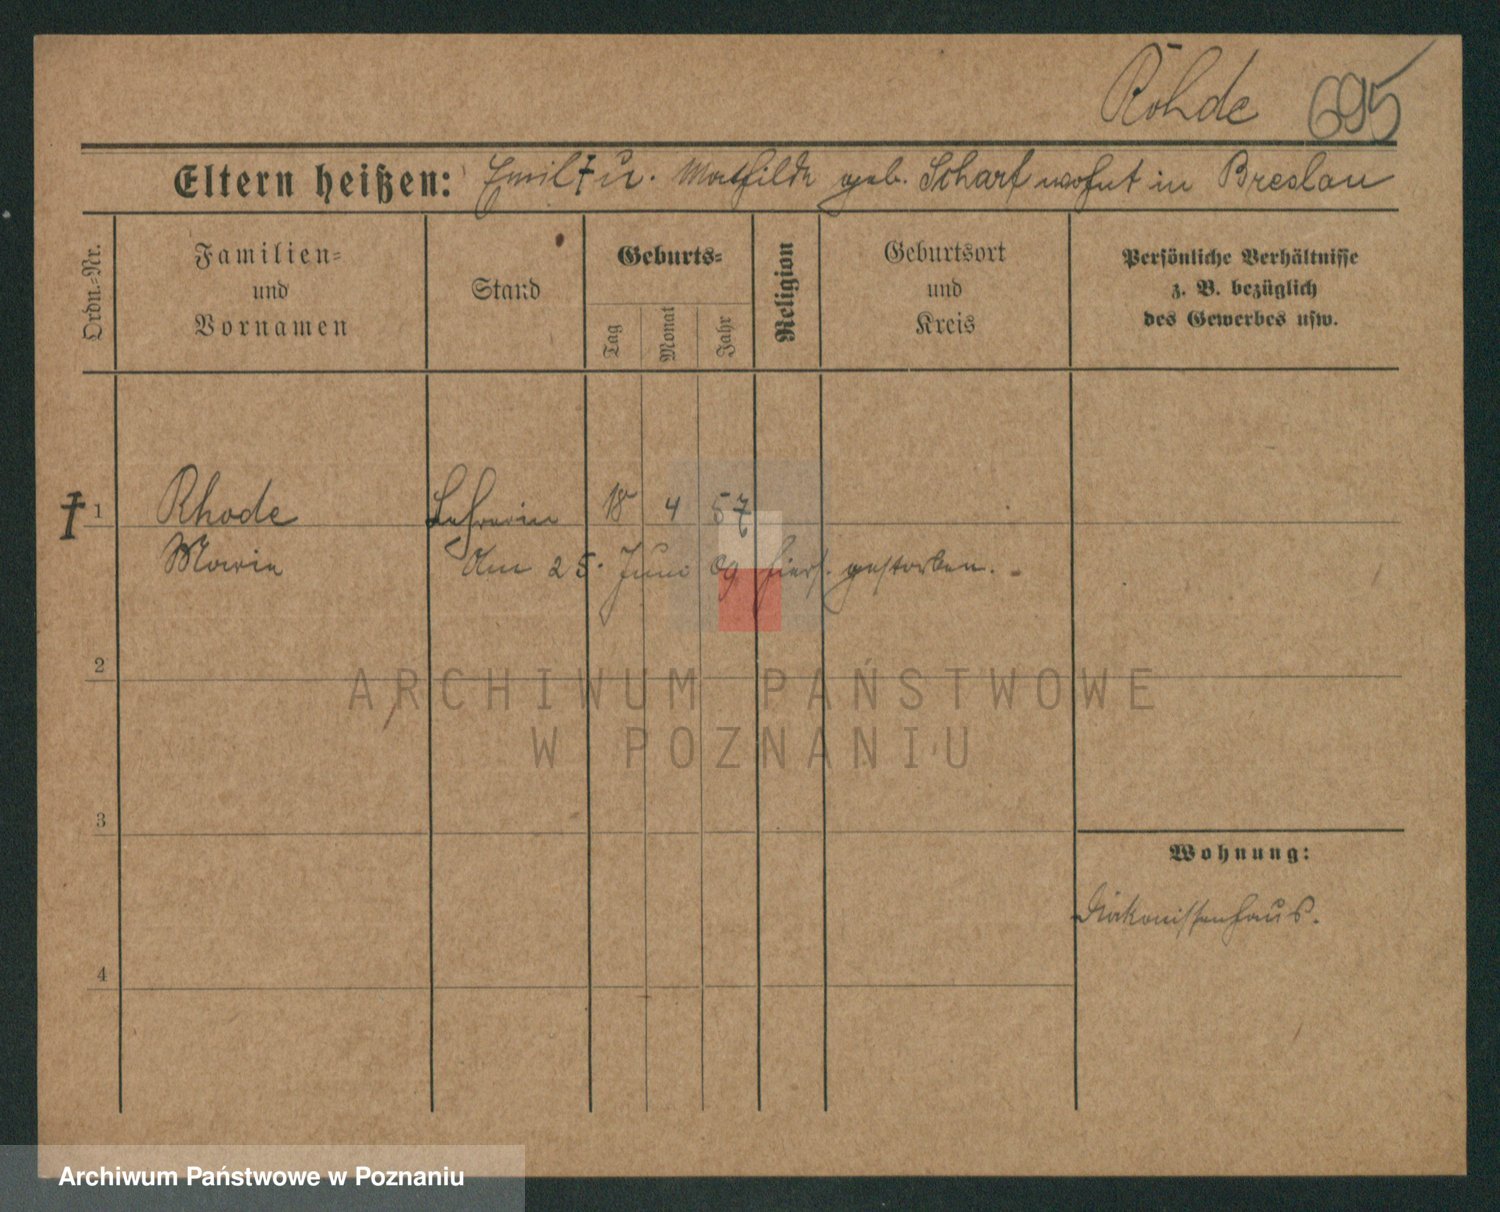 Röhde 695
Eltern heißen: Emil † u. Mathilde geb. Scharf wohnt in Breslau
Ordn.-Nr.
Familien-
und
Vornamen
Stand
Geburts-
Tag
Monat
Jahr
Religion
Geburtsort
und
Kreis
Persönliche Verhältnisse
z. B. bezüglich
des Gewerbes usw.
† 1 Rhode Lehrerin 18 4 57
Marie Am 25. Juni 09 hiers. gestorben.
2
ARCHIWUM PAŃSTWOWE
W POZNANIU
3
Wohnung:
Diakonissenhaus.
4
Archiwum Państwowe w Poznaniu